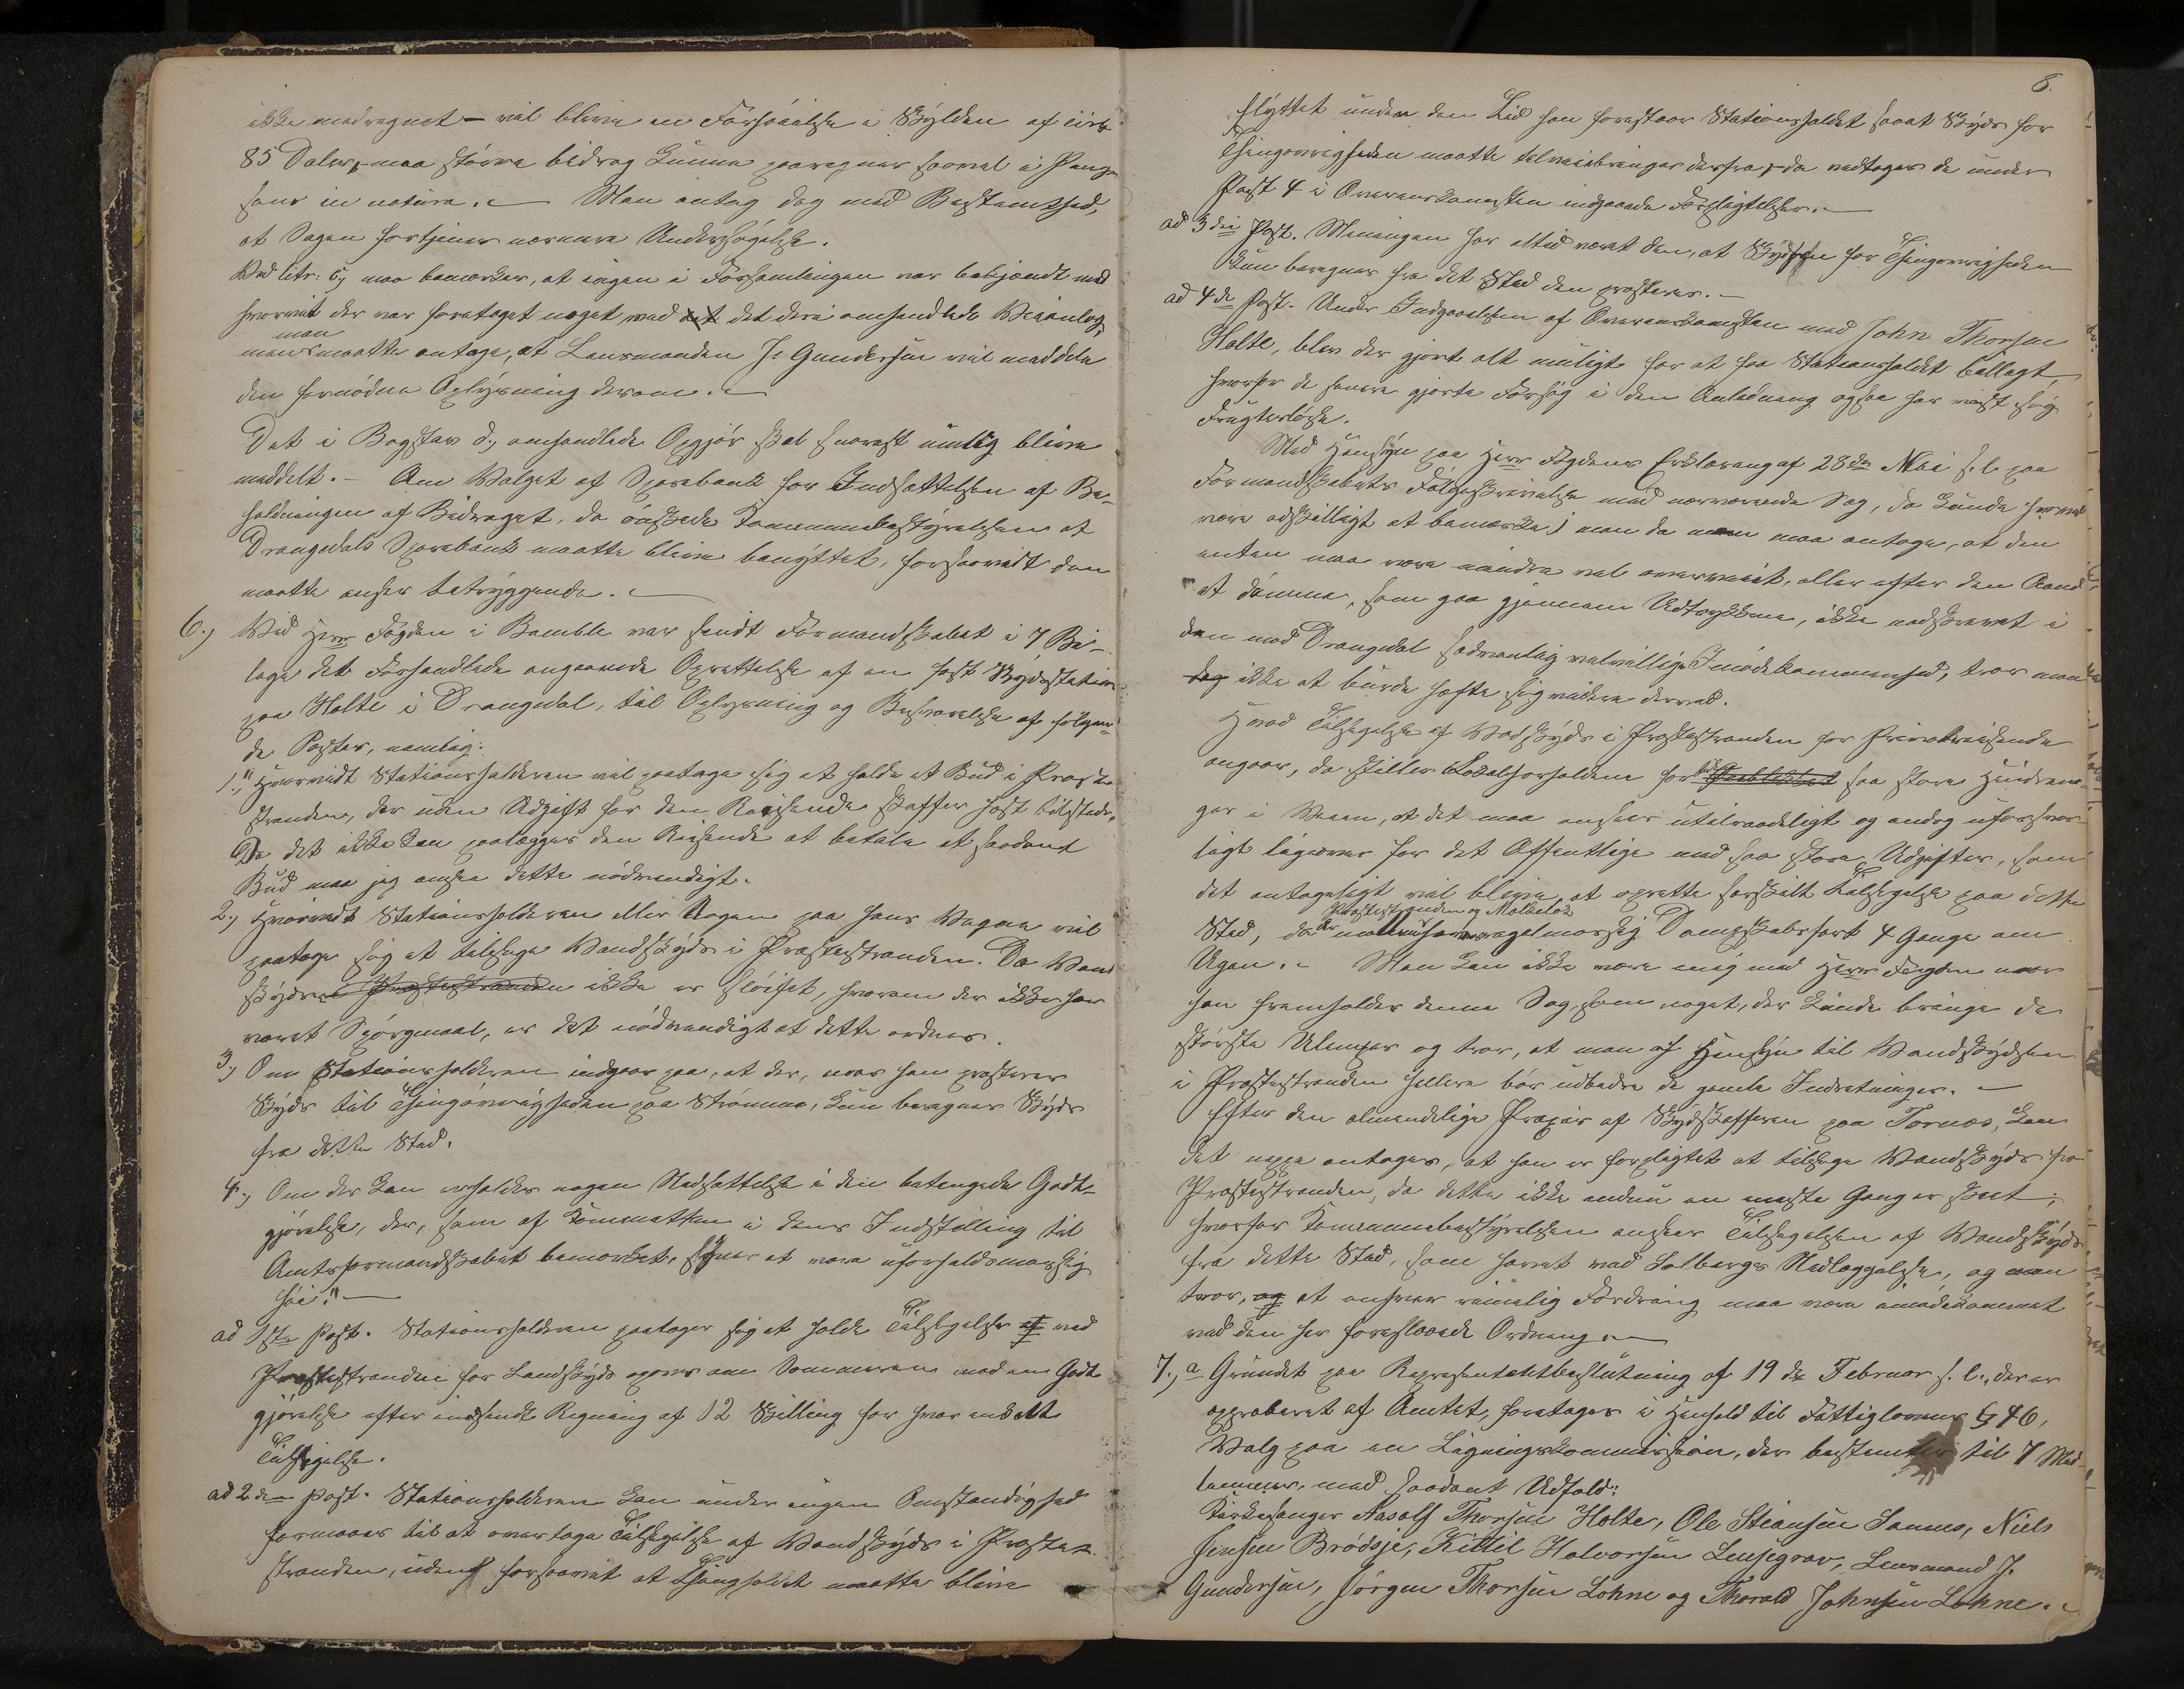 ikke medregnet – vil blive en Forhøielse i Skylden af circa
85 Daler, maa större bidrag kunne paaregnes saavel i Penge
som in natura. – Man antog dog med Bestemthed,
at Sagen fortjener nærmere Undersögelse.
Ved litr: c, maa bemærkes, at ingen i Forsamlingen var bekjendt med
hvorvidt der var foretaget noget med det deri omhandlede Veianlæg,
man
men maatte antage, at Lensmanden J. Gundersen vil meddele
den fornödne Oplysning derom. –
Det i Bogstav d, omhandlede Opgjör skal snarest mulig blive
meddelt. – Om Valget af Sparebank for Indsættelsen af Be-
holdningen af Bidraget, da önskede Communebestyrelsen at
Drangedals Sparebank maatte blive benyttet, forsaavidt den
maatte ansees betryggende. –
6., Ved Herr Fogden i Bamble var sendt Formandskabet i 7 Bi-
lage det Forhandlede angaaende Oprettelse af en fast Skydsstation
paa Holte i Drangedal, til Oplysning og Besvarelse af fölgen-
de Poster, nemlig:
1., "Hvorvidt Stationsholderen vil paatage sig at holde et Bud i Præste-
stranden, der uden Udgift for den Reisende skaffer Hest tilstede,
Da det ikke kan paalægges den Reisende at betale et saadant
Bud maa jeg ansee dette nödvendigt.
2., Hvorvidt Stationsholderen eller Nogen paa hans Vegne vil
paatage sig at tilsige Vandskyds i Præstestranden. Da Vand
skydsen i Præstestranden ikke er slöifet, hvorom der ikke har
været Spörgsmaal, er det nödvendigt at dette ordnes.
3., Om Stationsholderen indgaar paa, at der, naar han præsterer
Skyds til Thingövrigheden paa Strømme, kun beregnes Skyds
fra dette Sted.
4., Om der kan erholdes nogen Nedsættelse i den betingede Godt-
gjörelse, der, som af Committeen i dens Indstilling til
Amtsformandskabet bemærket, synes at være uforholdsmæssig
höi." –
ad 1ste Post. Stationsholderen paatager sig at holde Tilsigelse af ved
Præstestranden for Landskyds ogsaa om Sommeren mod en Godt
gjörelse efter indsendt Regning af 12 Skilling for hver enkelt
Tilsigelse.
ad 2den Post. Stationsholderen kan under ingen Omstændighed
formaaes til at overtage Tilsigelse af Vandskyds i Præste-
stranden, uden forsaavidt at Thingholdet maatte blive
8.
flyttet under den Tid han forestaar Stationsholdet saaat Skyds for
Thingövrigheden maatte tilveiebringes derfra, da vedtages de under
Post 4 i Overenskomsten indgaaede Forpligtelser. –
ad 3die Post. Meningen har altid været den, at Skydsen for Thingövrigheden
kun beregnes fra det Sted den præsteres. –
ad 4de Post. Under Indgaaelsen af Overenskomsten med John Thorsen
Holte, blev der gjort alt muligt for at faa Stationsholdet billigt,
hvorfor de senere gjorte Forsög i den Anledning ogsaa har vist sig
Frugteslöse.
Med Hensyn paa Herr Fogdens Erklæring af 28de Mai f. l. paa
Formandskabets Fölgeskrivelse med nærværende Sag, da kunde herved
være adskilligt at bemærke; men da man maa antage, at den
enten maa være mindre vel overveiet, eller efter den Aand
at dömme, som gaa gjennem Udtrykkene, ikke nedskrevet i
den mod Drangedal sædvanlig velvillige Imödekommenhed, tror man
dog ikke at burde hefte sig videre derved.
Hvad Tilsigelse af Vandskyds i Præstestranden for Privatreisende
angaar, da stiller Lokalforholdene for saa store Hindrin-
ger i Veien, at det maa ansees utilraadeligt og endog uforsvar-
ligt ligeover for det Offentlige med saa store Udgifter, som
det antageligt vil blive, at oprette særskilt Tilsigelse paa dette
Præstestranden og Molteløs
Sted, da der mellem regelmæssig Dampskibsfart 4 Gange om
Ugen. – Man kan ikke være enig med Herr Fogden naar
han fremholder denne Sag, som noget, der kunde bringe de
störste Ulemper og tror, at man af Hensyn til Vandskydsen
i Præstestranden hellere bör udbedre de gamle Indretninger. –
Efter den almindelige Praxis af Skydsskafferen paa Tornæs, kan
det neppe antages, at han er forpligtet at tilsige Vandskyds fra
Præstestranden, da dette ikke endnu en eneste Gang er skeet;
hvorfor Communebestyrelsen anseer Tilsigelsen af Vandskyds
fra dette Sted, som hævet ved Solbergs Nedlæggelse, og man
tror, og at enhver rimelig Fordring maa være imödekommet
ved den her foreslaaede Ordning. –
7., a Grundet paa Repræsentantbeslutning af 19de Februar f. l., der er
approberet af Amtet, foretages i Henhold til Fattiglovens § 46,
Valg paa en Ligningskommission, der bestemtes til 7 Med-
lemmer, med saadant Udfald:
Kirkesanger Aasolf Thorsen Holte, Ole Steansen Sannes, Niels
Jensen Brödsjö, Kittil Halvorsen Lensegrav, Lensmand J.
Gundersen, Jörgen Thorsen Lohne og Thorald Johnsen Lohne. –